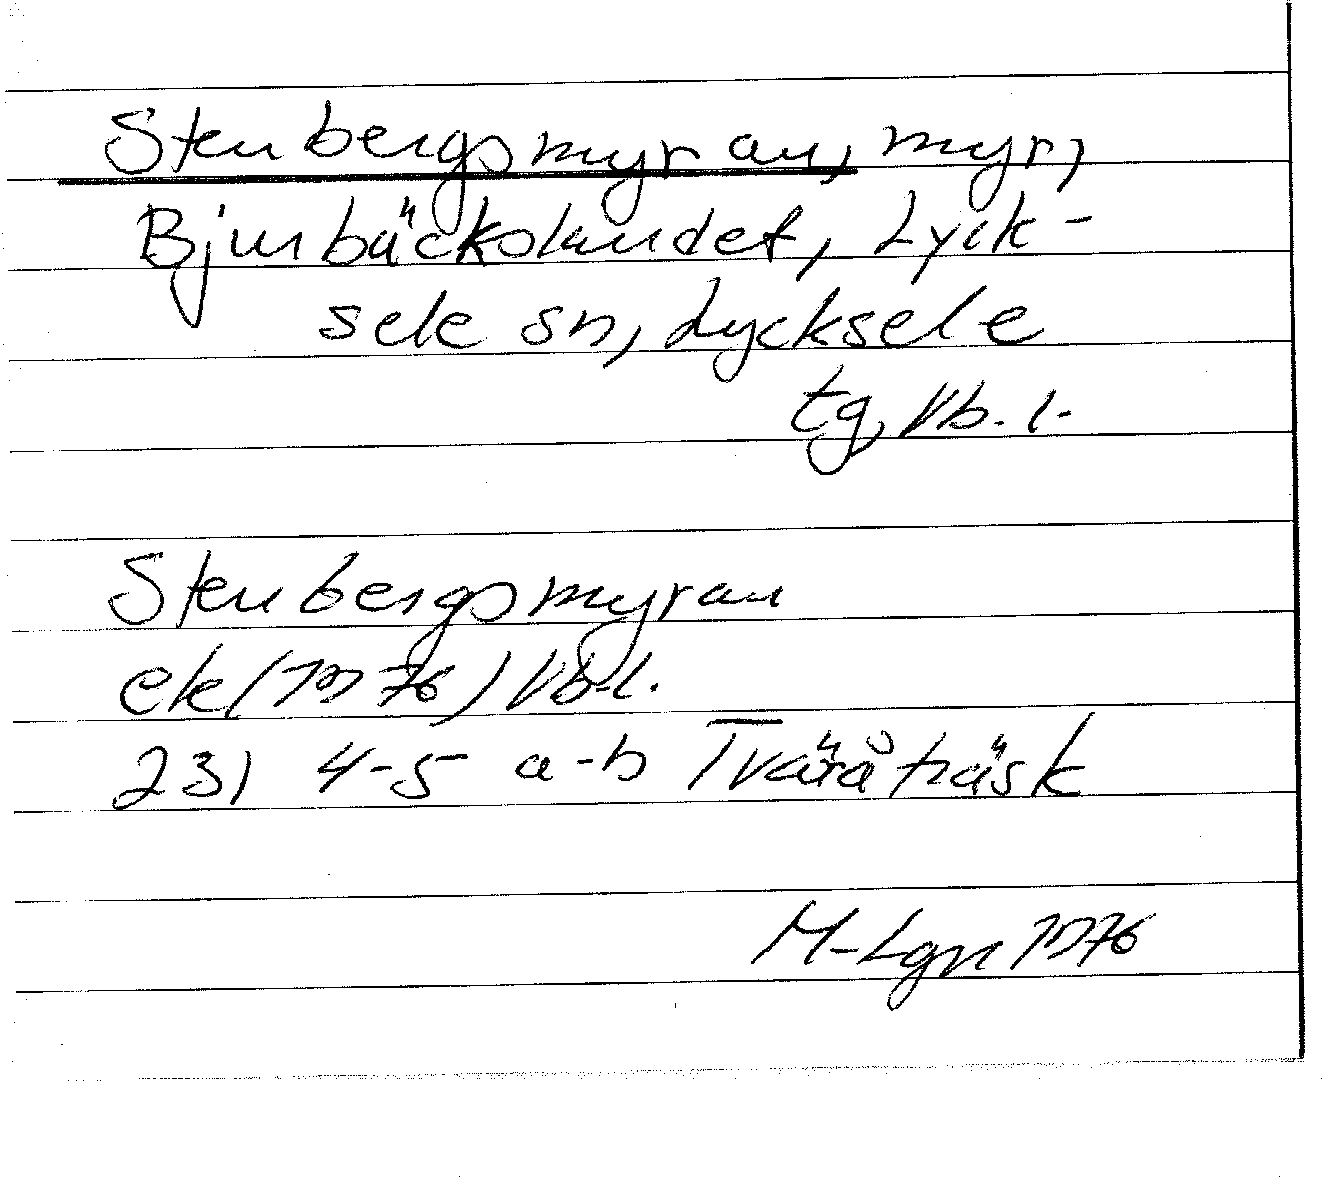 Stenbergsmyran, myr,
Bjurbäckslandet, Lyck-
sele sn, Lycksele
tg, Vb. l.
Stenbergsmyran
ek (1976) Vb. l.
231 4-5 a-b Tväråträsk
M-Lgn 1976